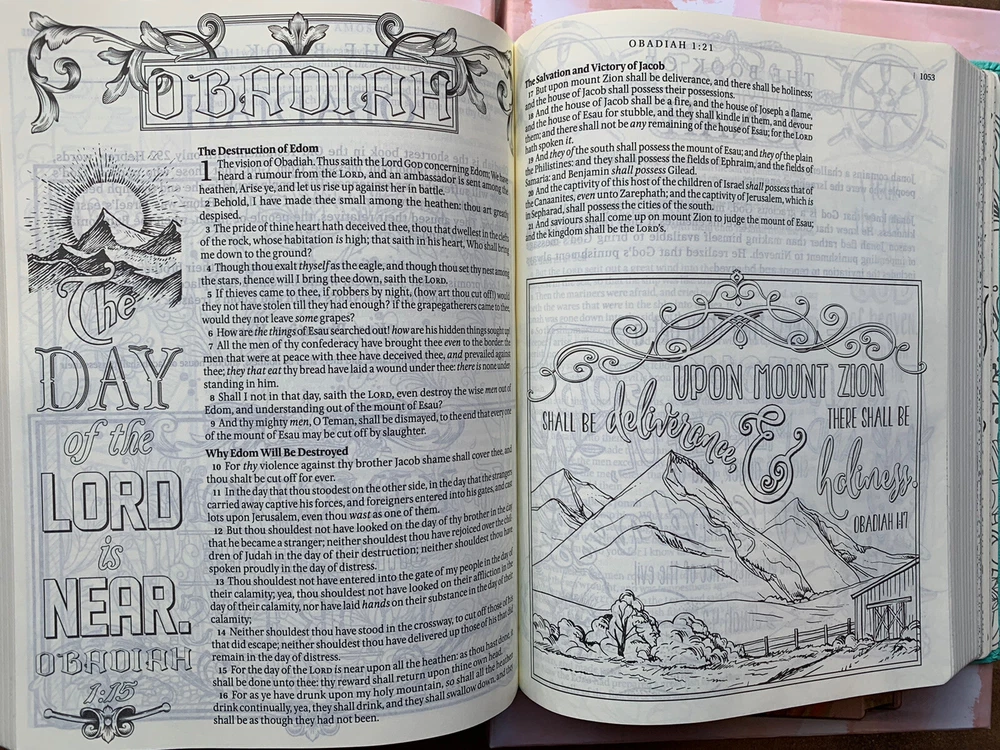 OBADIAH
The
DAY
of the
LORD
is
NEAR.
OBADIAH
1:15
The Destruction of Edom
1 The vision of Obadiah. Thus saith the Lord GOD concerning Edom; We have
heard a rumour from the LORD, and an ambassador is sent among the
heathen, Arise ye, and let us rise up against her in battle.
2 Behold, I have made thee small among the heathen: thou art greatly
despised.
3 The pride of thine heart hath deceived thee, thou that dwellest in the clefts
of the rock, whose habitation is high; that saith in his heart, Who shall bring
me down to the ground?
4 Though thou exalt thyself as the eagle, and though thou set thy nest among
the stars, thence will I bring thee down, saith the LORD.
5 If thieves came to thee, if robbers by night, (how art thou cut off!) would
they not have stolen till they had enough? if the grapegatherers came to thee,
would they not leave some grapes?
6 How are the things of Esau searched out! how are his hidden things sought up!
7 All the men of thy confederacy have brought thee even to the border: the
men that were at peace with thee have deceived thee, and prevailed against
thee; they that eat thy bread have laid a wound under thee: there is none under-
standing in him.
8 Shall I not in that day, saith the LORD, even destroy the wise men out of
Edom, and understanding out of the mount of Esau?
9 And thy mighty men, O Teman, shall be dismayed, to the end that every one
of the mount of Esau may be cut off by slaughter.
Why Edom Will Be Destroyed
10 For thy violence against thy brother Jacob shame shall cover thee, and
thou shalt be cut off for ever.
11 In the day that thou stoodest on the other side, in the day that the strangers
carried away captive his forces, and foreigners entered into his gates, and cast
lots upon Jerusalem, even thou wast as one of them.
12 But thou shouldest not have looked on the day of thy brother in the day
that he became a stranger; neither shouldest thou have rejoiced over the chil-
dren of Judah in the day of their destruction; neither shouldest thou have
spoken proudly in the day of distress.
13 Thou shouldest not have entered into the gate of my people in the day of
their calamity; yea, thou shouldest not have looked on their affliction in the
day of their calamity, nor have laid hands on their substance in the day of their
calamity;
14 Neither shouldest thou have stood in the crossway, to cut off those of his
that did escape; neither shouldest thou have delivered up those of his that did
remain in the day of distress.
15 For the day of the LORD is near upon all the heathen: as thou hast done, it
shall be done unto thee: thy reward shall return upon thine own head.
16 For as ye have drunk upon my holy mountain, so shall all the heathen
drink continually, yea, they shall drink, and they shall swallow down, and they
shall be as though they had not been.
OBADIAH 1:21
1053
The Salvation and Victory of Jacob
17 But upon mount Zion shall be deliverance, and there shall be holiness;
and the house of Jacob shall possess their possessions.
18 And the house of Jacob shall be a fire, and the house of Joseph a flame,
and the house of Esau for stubble, and they shall kindle in them, and devour
them; and there shall not be any remaining of the house of Esau; for the LORD
hath spoken it.
19 And they of the south shall possess the mount of Esau; and they of the plain
the Philistines: and they shall possess the fields of Ephraim, and the fields of
Samaria: and Benjamin shall possess Gilead.
20 And the captivity of this host of the children of Israel shall possess that of
the Canaanites, even unto Zarephath; and the captivity of Jerusalem, which is
in Sepharad, shall possess the cities of the south.
21 And saviours shall come up on mount Zion to judge the mount of Esau;
and the kingdom shall be the LORD's.
UPON MOUNT ZION
SHALL BE deliverance, & THERE SHALL BE
holiness.
OBADIAH 1:17